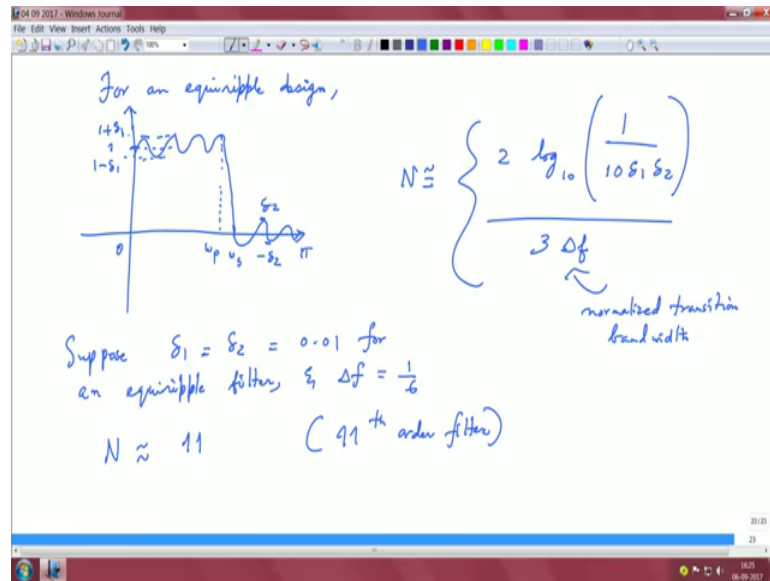 04 09 2017 - Windows Journal
File Edit View Insert Actions Tools Help
100%
For an equiripple design,
1+δ₁
1
1-δ₁
0
ωp ωs
δ₂
-δ₂
π
N ≅ { 2 log₁₀ ( 1 / 10 δ₁ δ₂ )
3 Δf
normalized transition
bandwidth
Suppose δ₁ = δ₂ = 0.01 for
an equiripple filter, & Δf = 1/6
N ≈ 11 (11th order filter)
23/23
23
16:25
06-09-2017